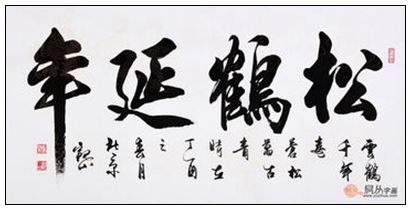 松鶴延年
雲鶴
千年
壽
蒼松
萬古
青
時在
丁酉
之
春月
北京
易从字画